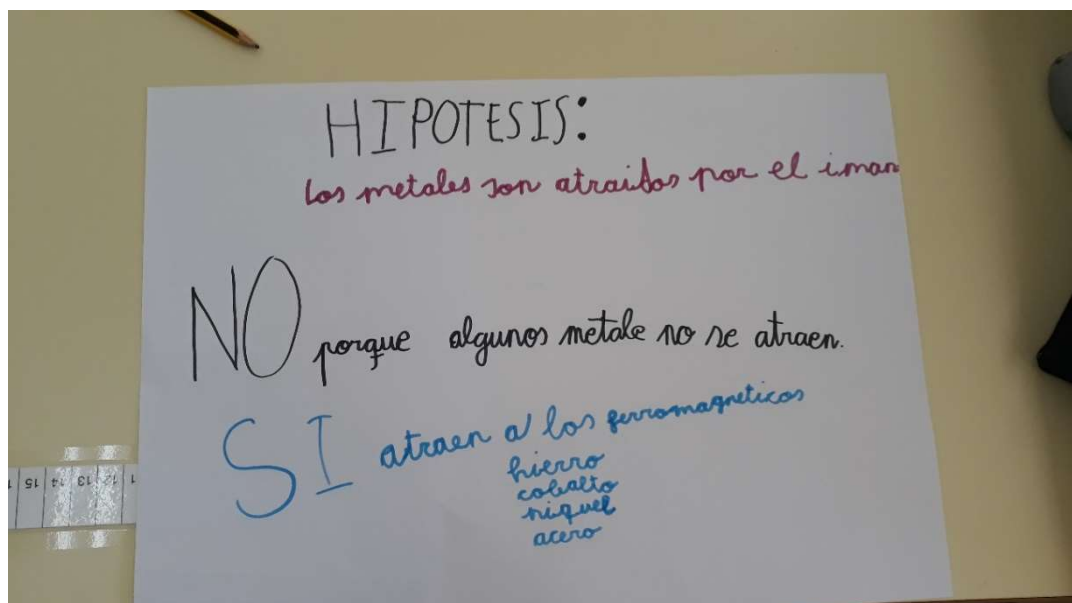 HIPOTESIS:
los metales son atraidos por el iman
NO porque algunos metale no se atraen.
SI atraen a los ferromagneticos
hierro
cobalto
niquel
acero
15 14 13 12 1